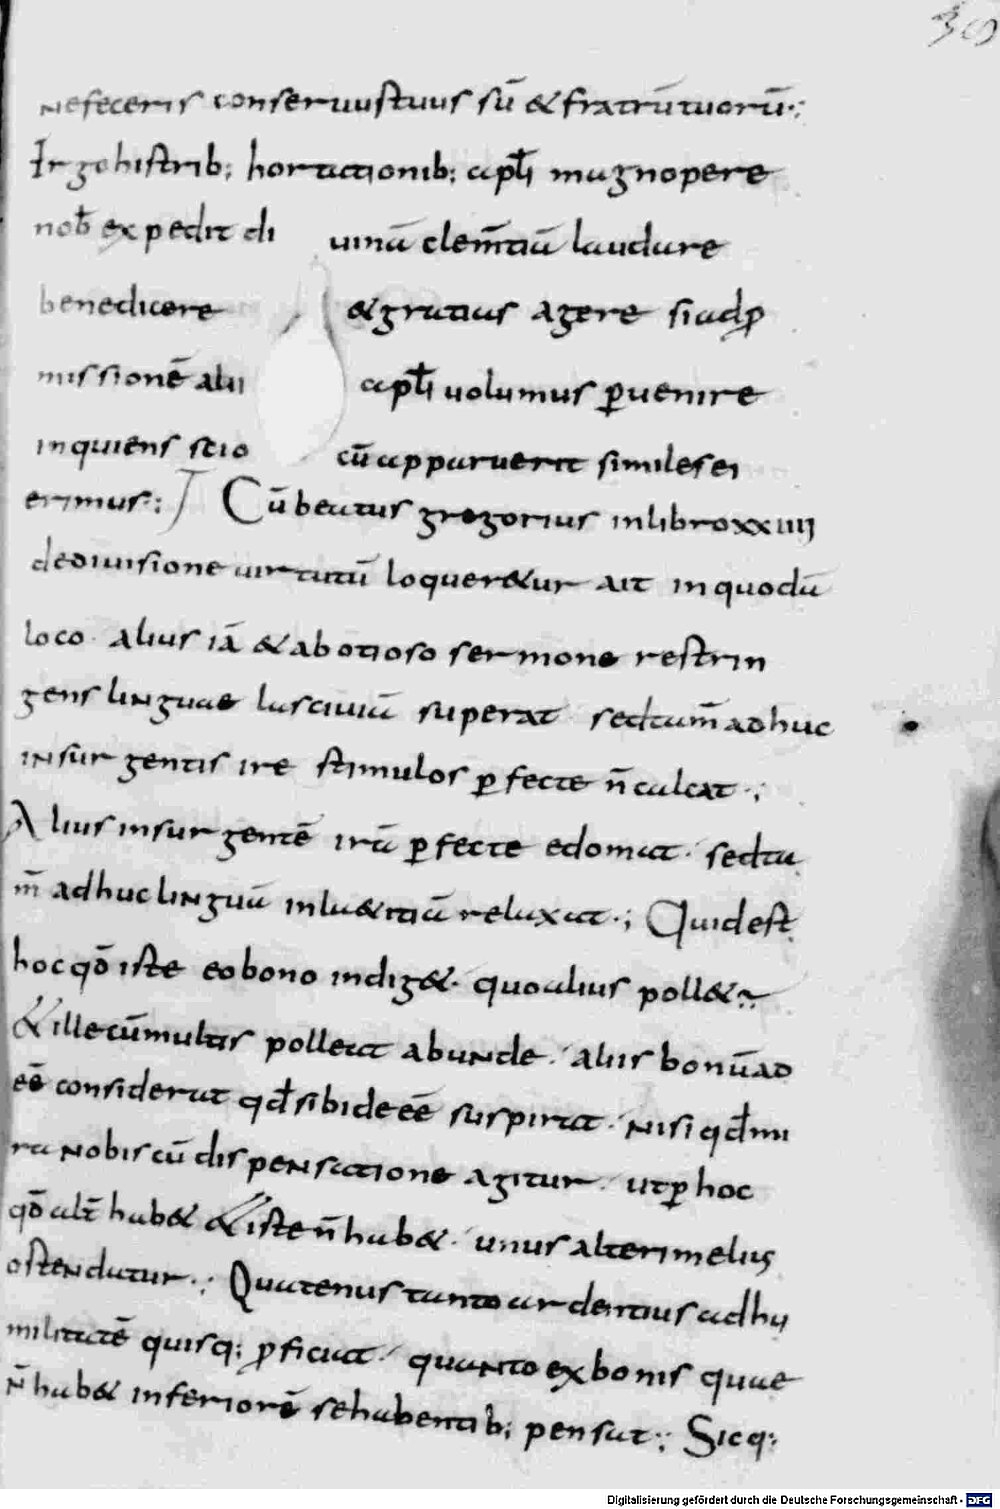 30
nefeceris conseruustuus sū & fratrūtuorū·:
Ergohistrib; hortationib; apłi magnopere
nob̄ expedit di uinā clem̄tiā laudare
benedicere & gratias agere siadp̱
missionē alii apłi uolumus ꝑuenire
inquiens scio cū apparuerit similesei
erimus·: Cūbeatus gregorius inlibroxxiiii
dediuisione uirtutū loquer&ur ait inquodā
loco· alius iā & abotioso sermone restrin
gens linguae lasciuiā superat sedtam̄adhuc
insurgentis ire stimulos ꝑfecte n̄calcat·;
Alius insurgentē irā ꝑfecte edomat· sedta
m̄ adhuclinguā inlu&itiā relaxat·; Quidest
hocqđ iste eobono indig&· quoalius poll&·~
&illecūmultis polleat abunde· aliis bonūad
eē considerat qđsibideeē suspirat· nisi qđmi
ra nobiscū dispensatione agitur· utꝑhoc
qđ alt̄ hab& &iste n̄hab&· unus alterimelius
ostendatur·; Quatenus tantoardentius adhu
militatē quisq; ꝓficiat· quantoexbonis quae
n̄hab& inferiorē sehabentib; pensat·; Sicq;
Digitalisierung gefördert durch die Deutsche Forschungsgemeinschaft - DFG